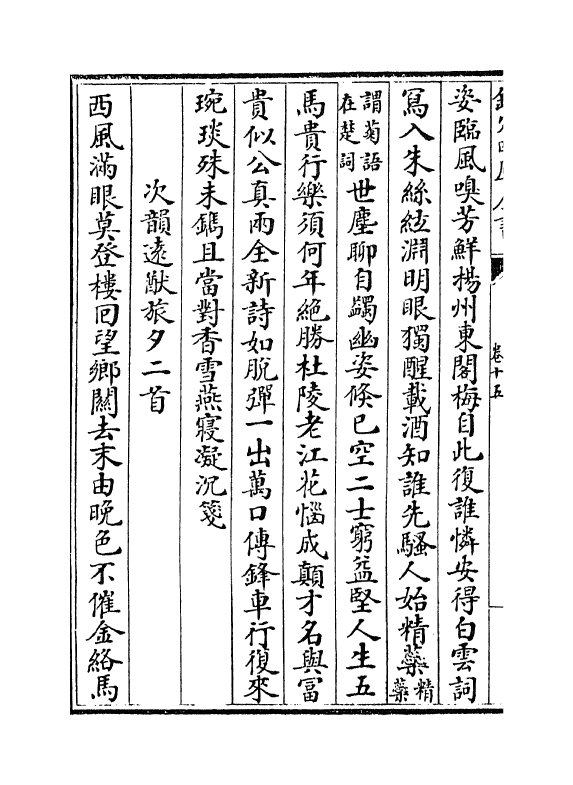 欽定四庫全書
卷十五
姿臨風嗅芳鮮揚州東閣梅自此復誰憐安得白雲詞
寫入朱絲絃淵明眼獨醒載酒知誰先騷人始精蘂精蘂
謂菊語在楚詞世塵聊自蠲幽姿倏已空二士窮益堅人生五
馬貴行樂須何年絶勝杜陵老江花惱成顛才名與富
貴似公真兩全新詩如脫彈一出萬口傳鋒車行復來
琬琰殊未鐫且當對香雪燕寢凝沉箋
次韻遠猷旅夕二首
西風滿眼莫登樓回望鄉關去末由晚色不催金絡馬